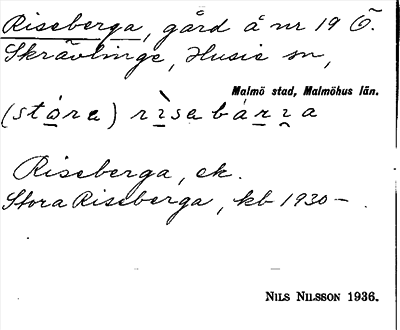 Riseberga, gård å nr 19 Ö.
Skrävlinge, Husie sn,
Malmö stad, Malmöhus län.
(stóra) rìsebárɪa
Riseberga, ek.
Stora Riseberga, kb 1930 – .
NILS NILSSON 1936.